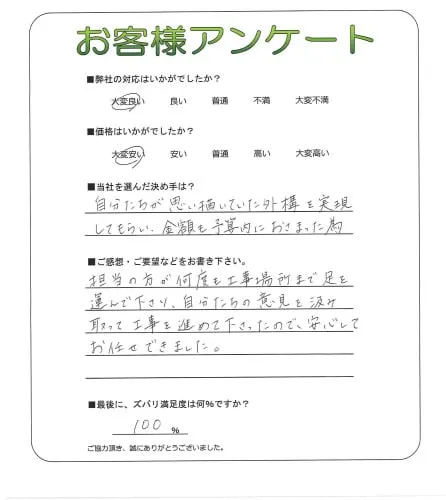 お客様アンケート
■弊社の対応はいかがでしたか?
大変良い 良い 普通 不満 大変不満
■価格はいかがでしたか?
大変安い 安い 普通 高い 大変高い
■当社を選んだ決め手は?
自分たちが思い描いていた外構を実現
してもらい、金額も予算内におさまった為
■ご感想・ご要望などをお書き下さい。
担当の方が何度も工事場所まで足を
運んで下さり、自分たちの意見を汲み
取って工事を進めて下さったので、安心して
お任せできました。
■最後に、ズバリ満足度は何%ですか?
100 %
ご協力頂き、誠にありがとうございました。